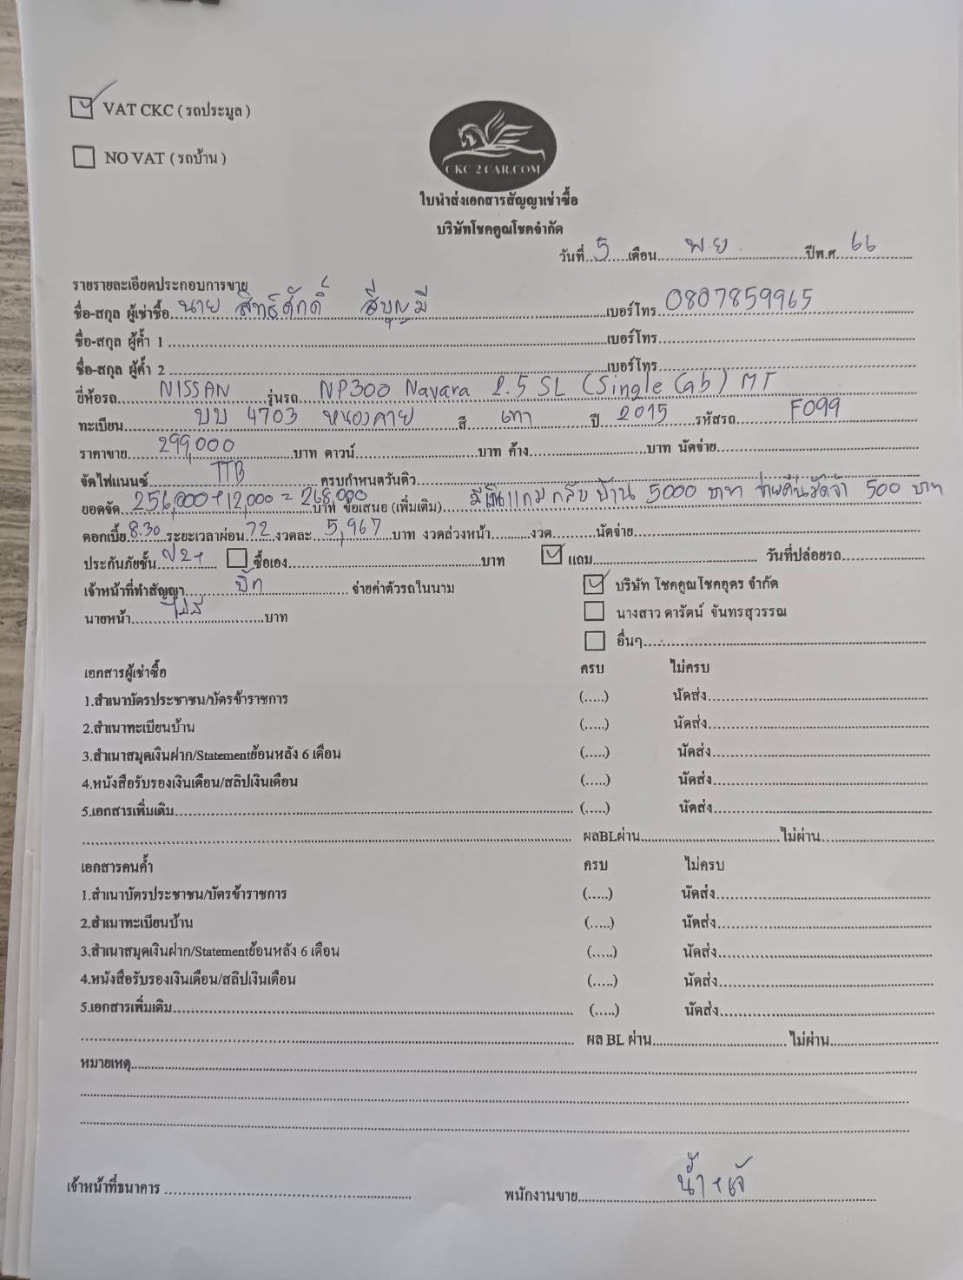 VAT CKC ( รถประมูล )
NO VAT ( รถบ้าน )
CKC 2 CAR.COM
ใบนำส่งเอกสารสัญญาเช่าซื้อ
บริษัทโชคคูณโชคจำกัด
วันที่ 5 เดือน พ.ย ปีพ.ศ. 66
รายรายละเอียดประกอบการขาย
ชื่อ-สกุล ผู้เช่าซื้อ นาย สิทธิ์ศักดิ์ สีบุญมี เบอร์โทร 0807859965
ชื่อ-สกุล ผู้ค้ำ 1 เบอร์โทร
ชื่อ-สกุล ผู้ค้ำ 2 เบอร์โทร
ยี่ห้อรถ NISSAN รุ่นรถ NP300 Navara 2.5 SL (Single Cab) MT
ทะเบียน บบ 4703 หนองคาย สี เทา ปี 2015 รหัสรถ F099
ราคาขาย 299,000 บาท ดาวน์ บาท ค้าง บาท นัดจ่าย
จัดไฟแนนซ์ TTB ครบกำหนดวันคิว
ยอดจัด 256,000+12,000 = 268,000 บาท ข้อเสนอ (เพิ่มเติม) มีเงินแถมกลับบ้าน 5000 บาท 500 บาท
ดอกเบี้ย 8.30 ระยะเวลาผ่อน 72 งวดละ 5,967 บาท งวดล่วงหน้า งวด นัดจ่าย
ประกันภัยชั้น ป2+ ซื้อเอง บาท แถม วันที่ปล่อยรถ
เจ้าหน้าที่ทำสัญญา บิ๊ก จ่ายค่าตัวรถในนาม บริษัท โชคคูณโชคอุดร จำกัด
นายหน้า ไม่มี บาท นางสาว ดารัตน์ จันทรสุวรรณ
อื่นๆ
เอกสารผู้เช่าซื้อ ครบ ไม่ครบ
1.สำเนาบัตรประชาชน/บัตรข้าราชการ (.....) นัดส่ง
2.สำเนาทะเบียนบ้าน (.....) นัดส่ง
3.สำเนาสมุดเงินฝาก/Statementย้อนหลัง 6 เดือน (.....) นัดส่ง
4.หนังสือรับรองเงินเดือน/สลิปเงินเดือน (.....) นัดส่ง
5.เอกสารเพิ่มเติม (.....) นัดส่ง
ผลBLผ่าน ไม่ผ่าน
เอกสารคนค้ำ ครบ ไม่ครบ
1.สำเนาบัตรประชาชน/บัตรข้าราชการ (.....) นัดส่ง
2.สำเนาทะเบียนบ้าน (.....) นัดส่ง
3.สำเนาสมุดเงินฝาก/Statementย้อนหลัง 6 เดือน (.....) นัดส่ง
4.หนังสือรับรองเงินเดือน/สลิปเงินเดือน (.....) นัดส่ง
5.เอกสารเพิ่มเติม (.....) นัดส่ง
ผล BL ผ่าน ไม่ผ่าน
หมายเหตุ
เจ้าหน้าที่ธนาคาร พนักงานขาย